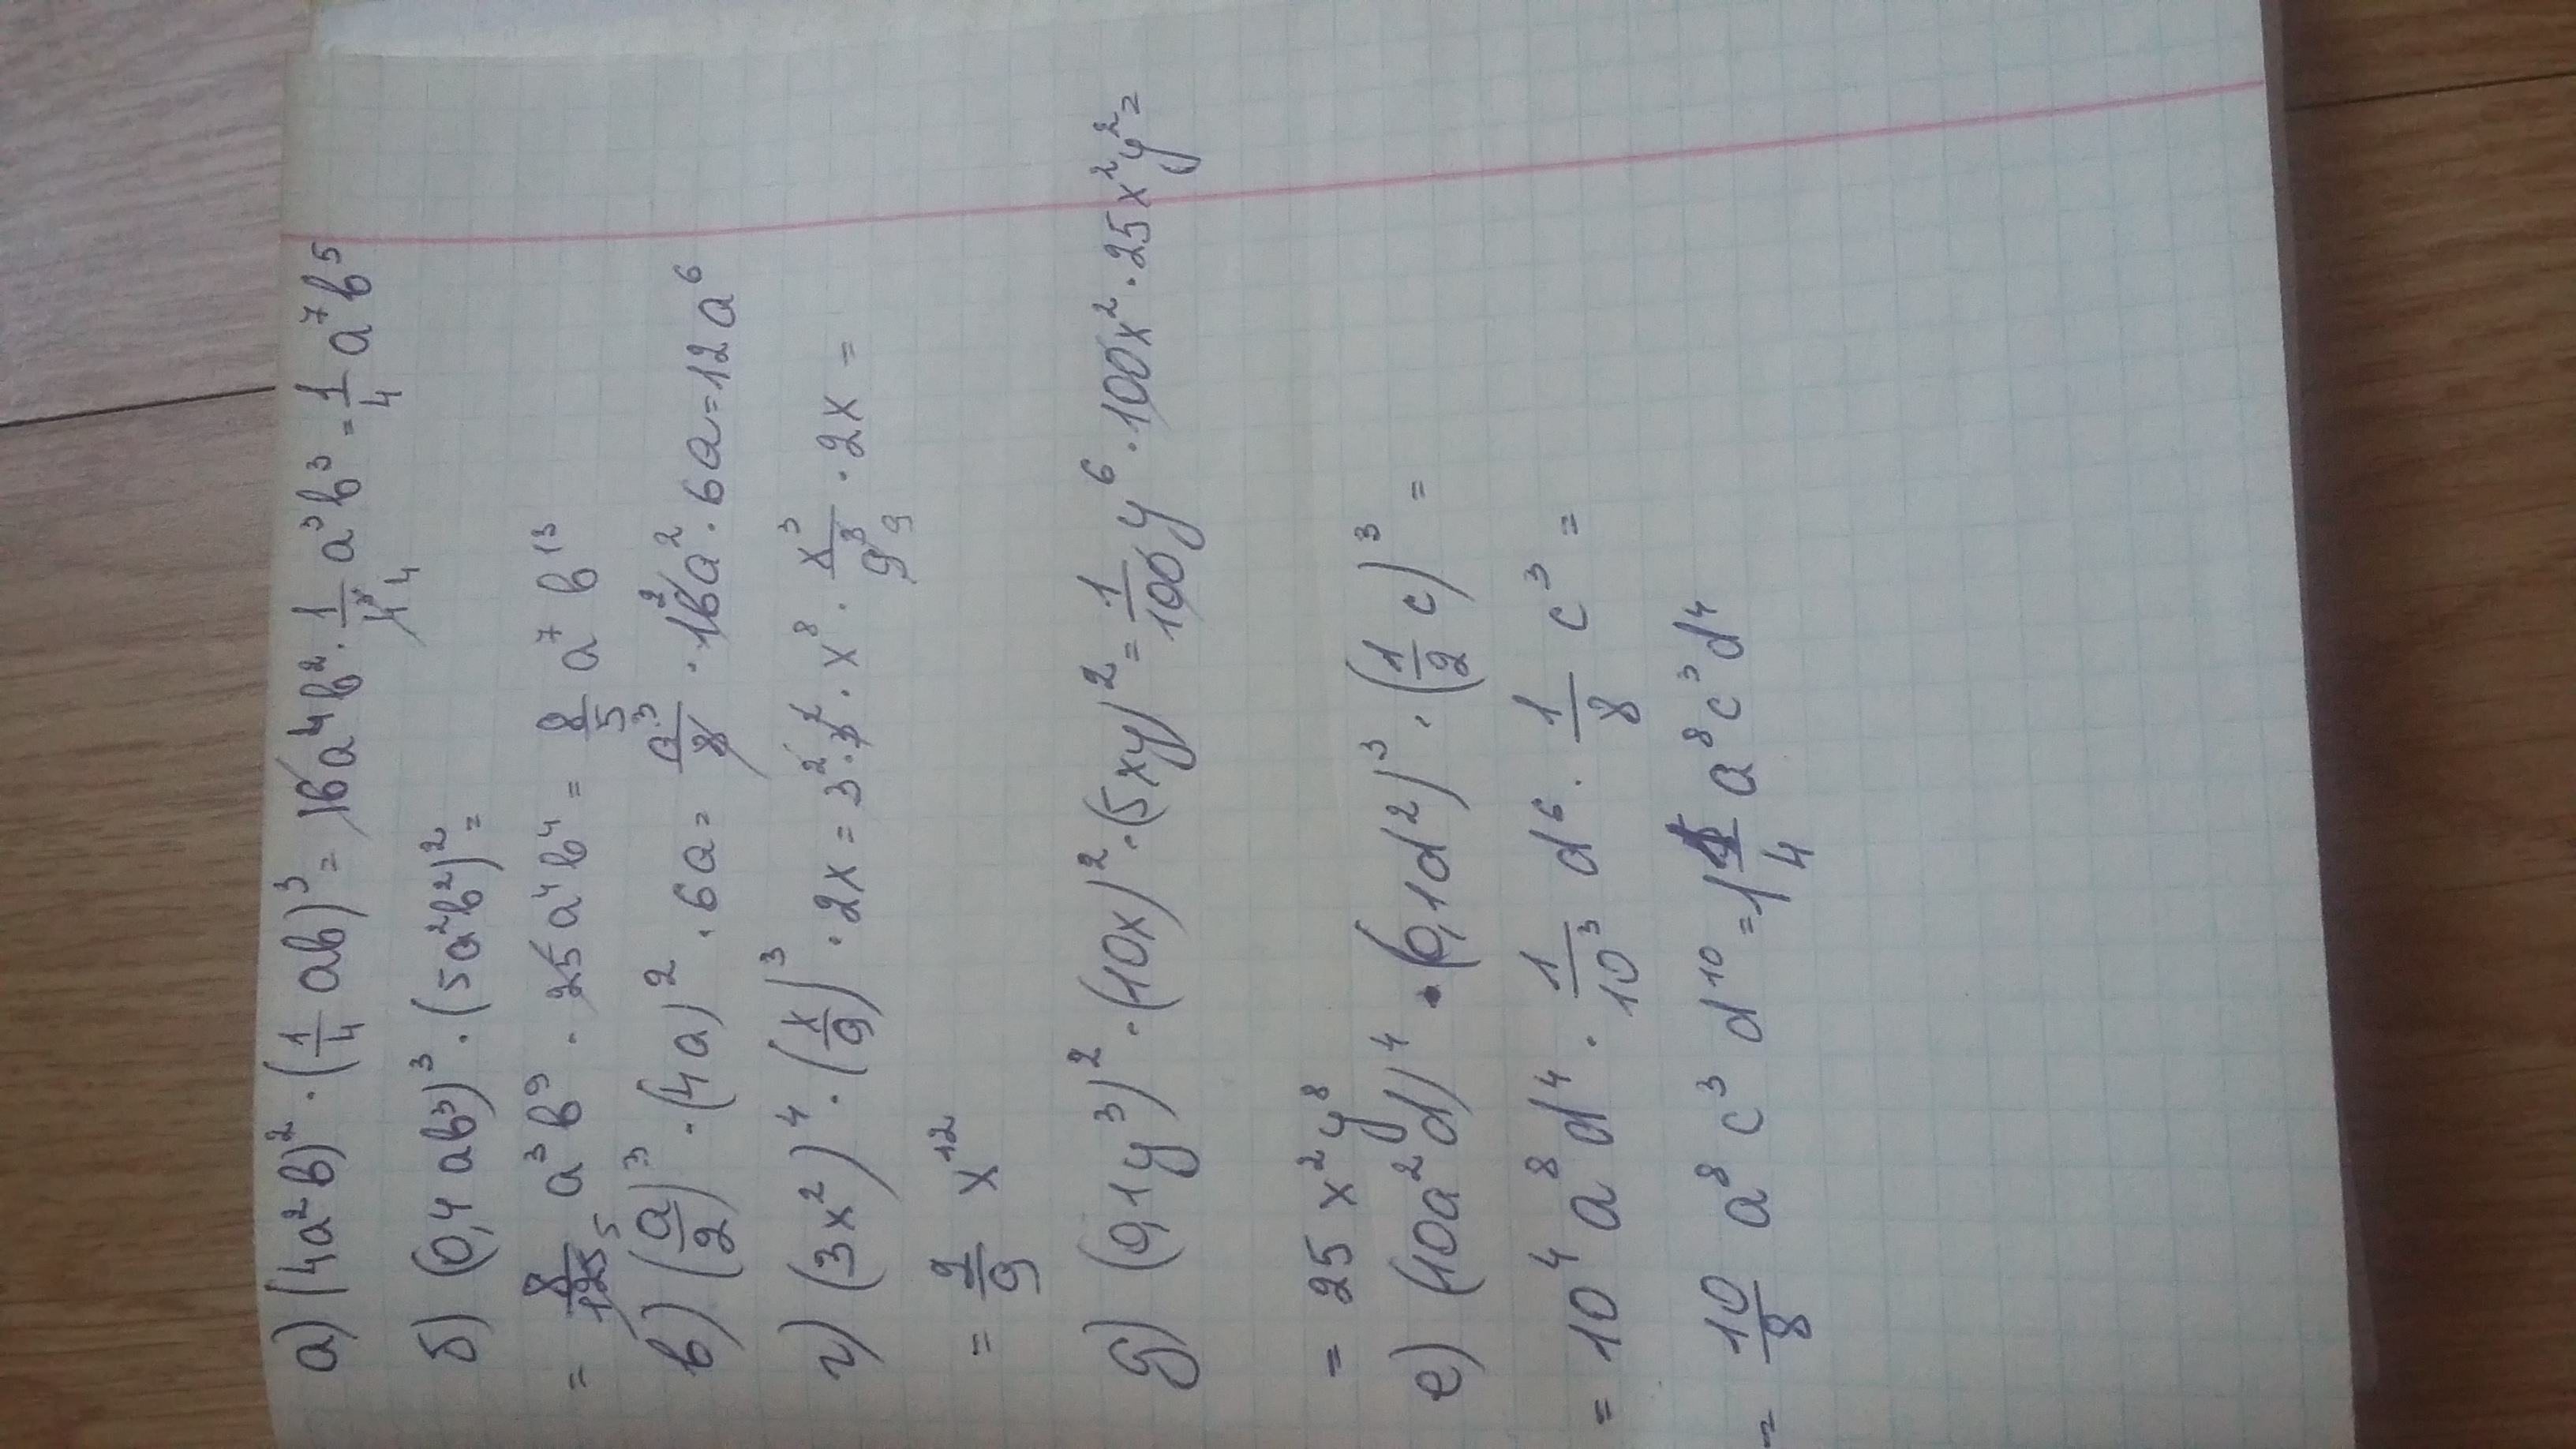 а) (4a²b)² · (1/4 ab)³ = 16a⁴b² · 1/4³ a³b³ = 1/4 a⁷b⁵
б) (0,4 ab³)³ · (5a²b²)² =
= 8/125 a³b⁹ · 25a⁴b⁴ = 8/5 a⁷b¹³
в) (a/2)³ · (4a)² · 6a = a³/8 · 16a² · 6a = 12a⁶
г) (3x²)⁴ · (x/9)³ · 2x = 3² · 3² · x⁸ · x³/9³ · 2x =
= 2/9 x¹²
д) (0,1y³)² · (10x)² · (5xy)² = 1/100 y⁶ · 100x² · 25x²y² =
= 25x²y⁸
е) (10a²d)⁴ · (0,1d²)³ · (1/2 c)³ =
= 10⁴a⁸d⁴ · 1/10³ d⁶ · 1/8 c³ =
= 10/8 a⁸c³d¹⁰ = 1 1/4 a⁸c³d⁴